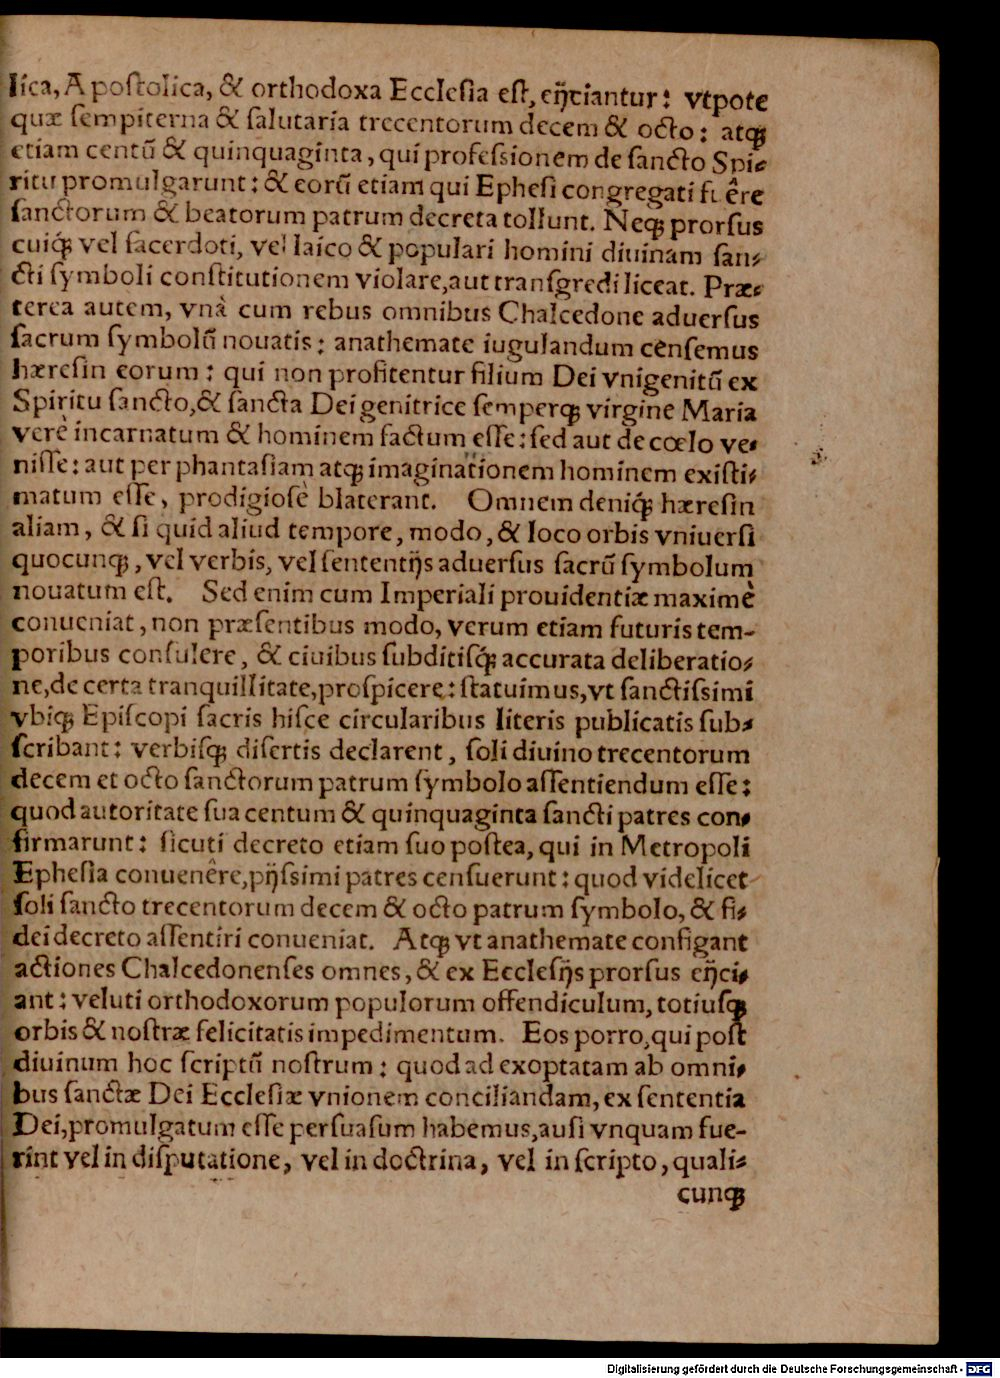 lica, Apoſtolica, & orthodoxa Eccleſia eſt, eijciantur: vtpote
quæ ſempiterna & ſalutaria trecentorum decem & octo: atq;
etiam centũ & quinquaginta, qui profeſsionem de ſancto Spi-
ritu promulgarunt: & eorũ etiam qui Epheſi congregati fuêre
ſanctorum & beatorum patrum decreta tollunt. Neq; prorſus
cuiq́; vel ſacerdoti, vel laico & populari homini diuinam ſan-
cti ſymboli conſtitutionem violare, aut tranſgredi liceat. Præ-
terea autem, vnà cum rebus omnibus Chalcedone aduerſus
ſacrum ſymbolũ nouatis: anathemate iugulandum cenſemus
hæreſin eorum: qui non profitentur filium Dei vnigenitũ ex
Spiritu ſancto, & ſancta Dei genitrice ſemperq; virgine Maria
verè incarnatum & hominem factum eſſe: ſed aut de cœlo ve-
niſſe: aut per phantaſiam atq; imaginationem hominem exiſti-
matum eſſe, prodigioſè blaterant. Omnem deniq́; hæreſin
aliam, & ſi quid aliud tempore, modo, & loco orbis vniuerſi
quocunq;, vel verbis, vel ſententijs aduerſus ſacrũ ſymbolum
nouatum eſt. Sed enim cum Imperiali prouidentiæ maximè
conueniat, non præſentibus modo, verum etiam futuris tem-
poribus conſulere, & ciuibus ſubditiſq́; accurata deliberatio-
ne, de certa tranquillitate, proſpicere: ſtatuimus, vt ſanctiſsimi
vbiq; Epiſcopi ſacris hiſce circularibus literis publicatis ſub-
ſcribant: verbiſq; diſertis declarent, ſoli diuino trecentorum
decem et octo ſanctorum patrum ſymbolo aſſentiendum eſſe:
quod autoritate ſua centum & quinquaginta ſancti patres con-
firmarunt: ſicuti decreto etiam ſuo poſtea, qui in Metropoli
Epheſia conuenêre, pijſsimi patres cenſuerunt: quod videlicet
ſoli ſancto trecentorum decem & octo patrum ſymbolo, & fi-
dei decreto aſſentiri conueniat. Atq; vt anathemate configant
actiones Chalcedonenſes omnes, & ex Eccleſijs prorſus eijci-
ant: veluti orthodoxorum populorum offendiculum, totiuſq;
orbis & noſtræ felicitatis impedimentum. Eos porro, qui poſt
diuinum hoc ſcriptũ noſtrum: quod ad exoptatam ab omni-
bus ſanctæ Dei Eccleſiæ vnionem conciliandam, ex ſententia
Dei, promulgatum eſſe perſuaſum habemus, auſi vnquam fue-
rint vel in diſputatione, vel in doctrina, vel in ſcripto, quali-
cunq;
Digitalisierung gefördert durch die Deutsche Forschungsgemeinschaft - DFG